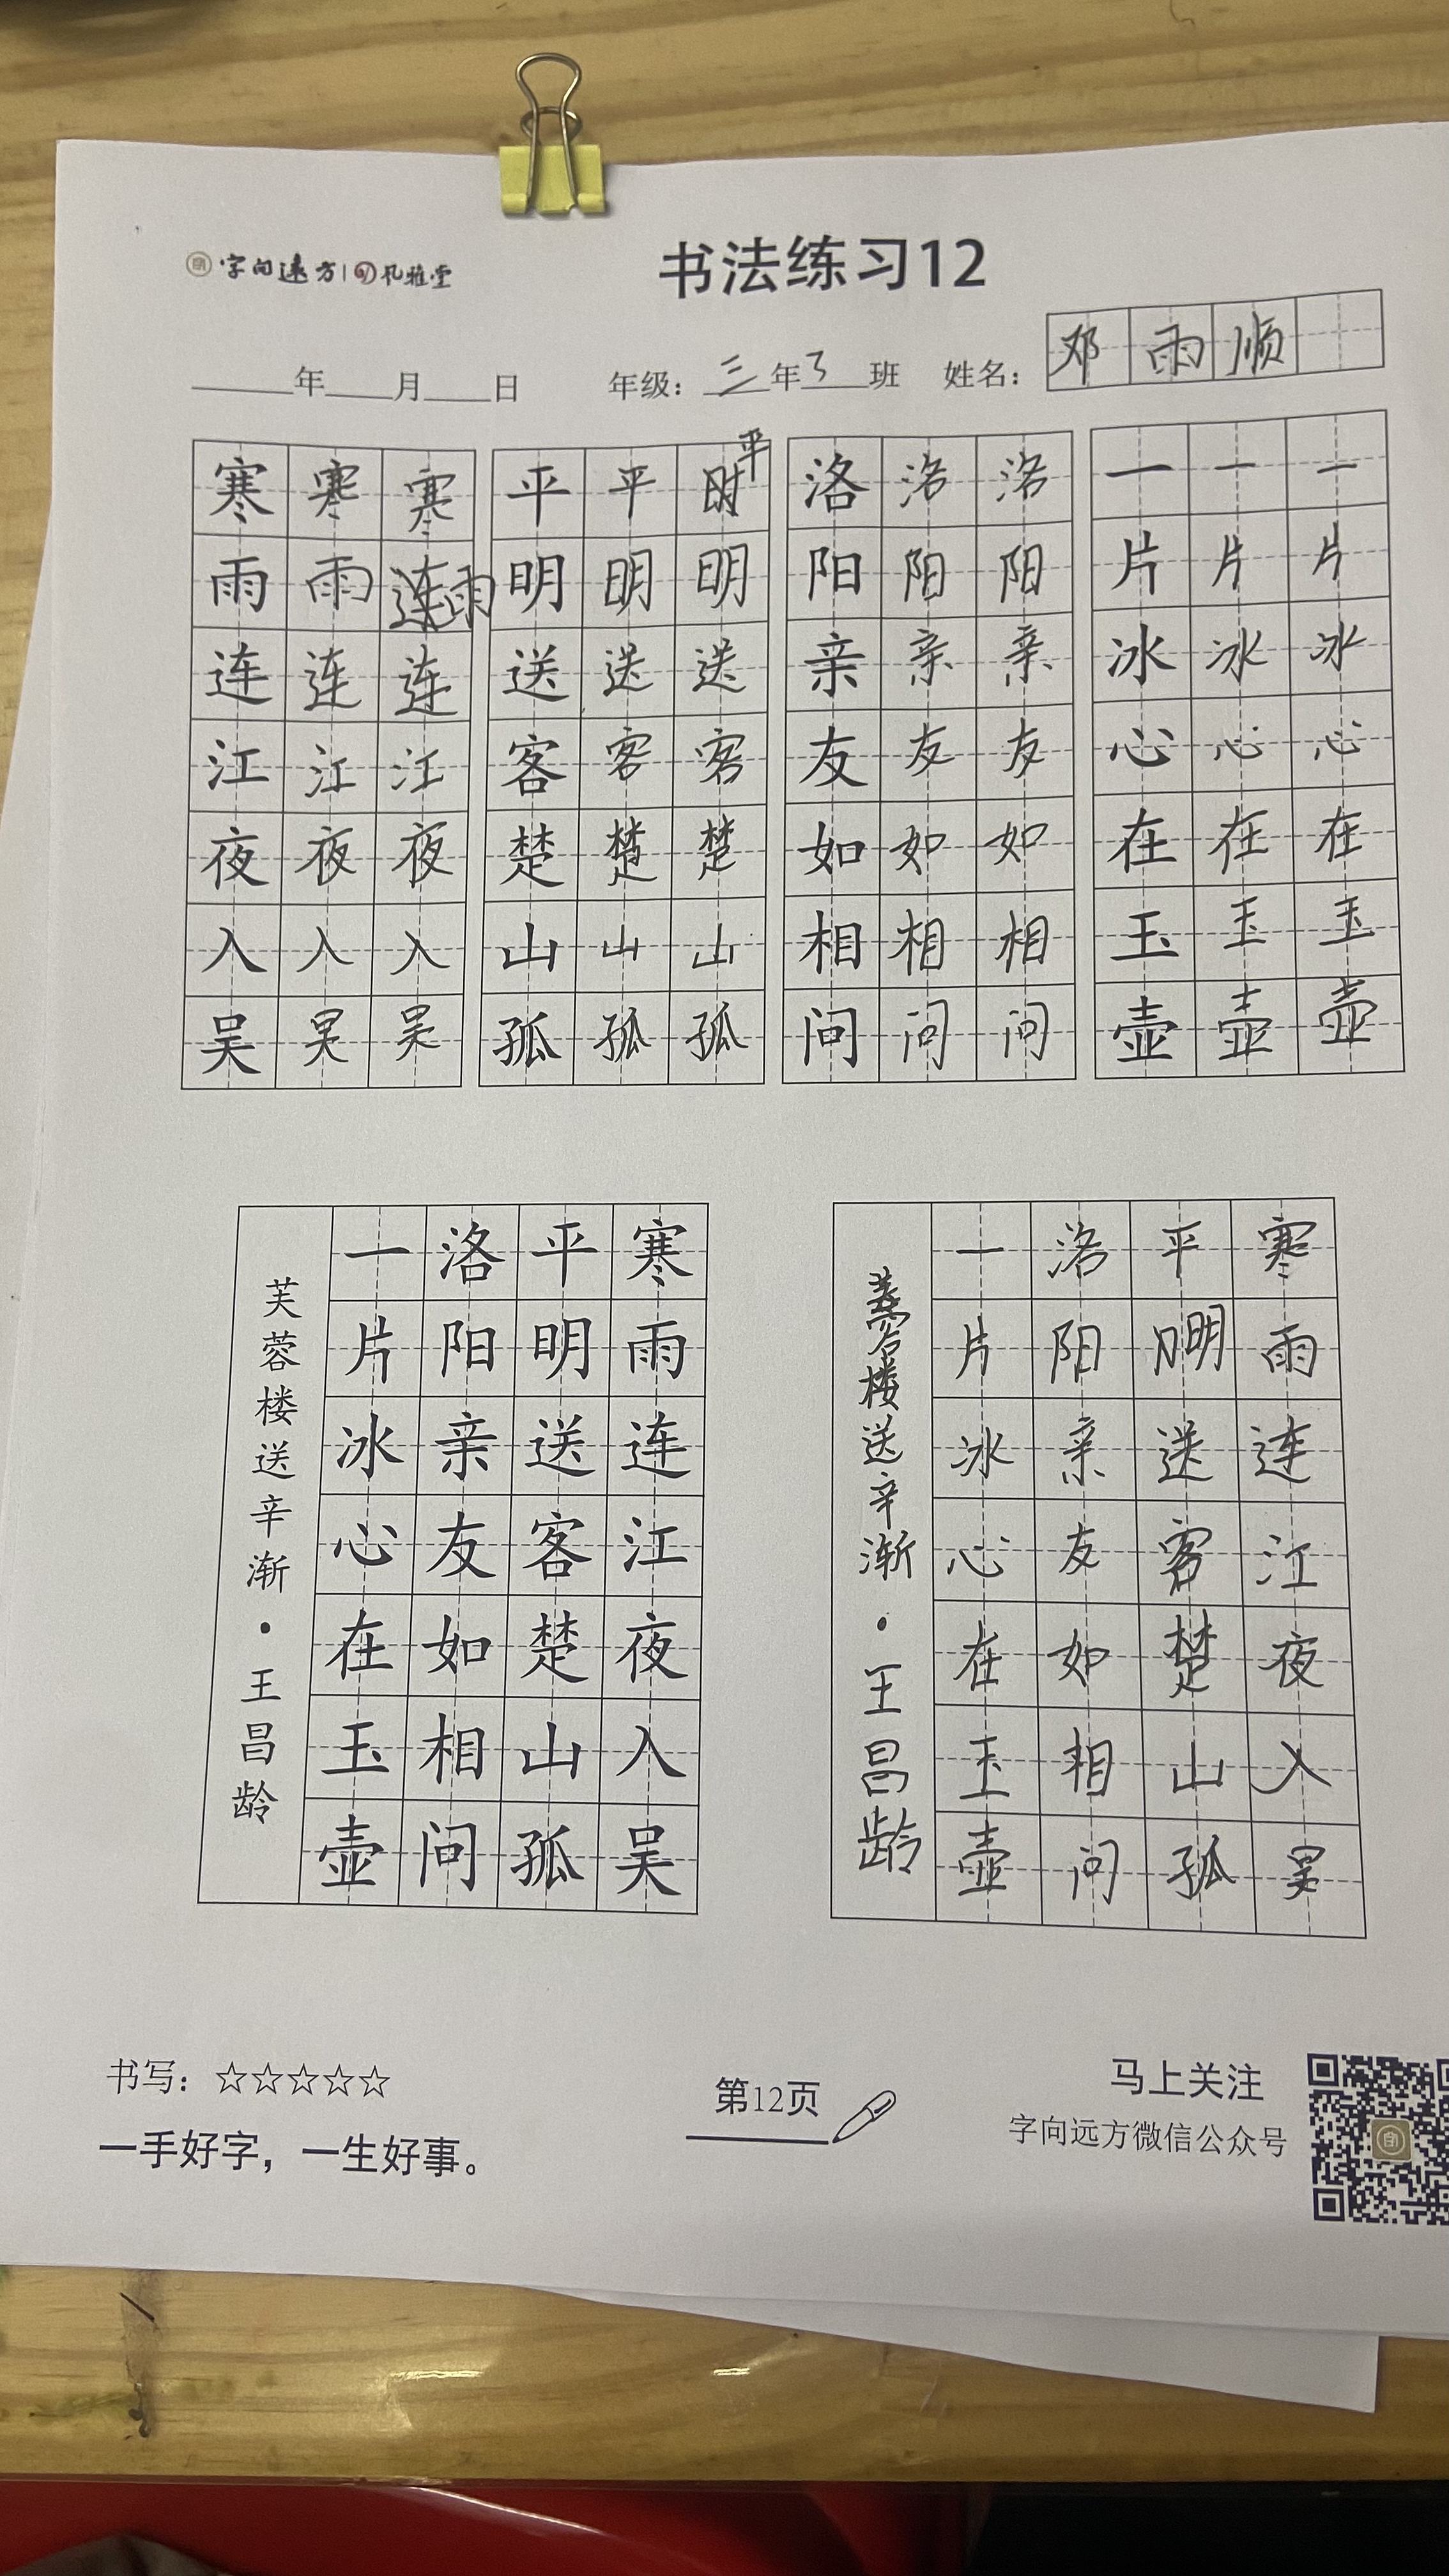 字向远方 孔雅堂
书法练习12
年 月 日 年级：三年3班 姓名：邓雨顺
寒寒寒 平平平 洛洛洛 一一一
雨雨雨 明明明 阳阳阳 片片片
连连连 送送送 亲亲亲 冰冰冰
江江江 客客客 友友友 心心心
夜夜夜 楚楚楚 如如如 在在在
入入入 山山山 相相相 玉玉玉
吴吴吴 孤孤孤 问问问 壶壶壶
寒雨连江夜入吴
平明送客楚山孤
洛阳亲友如相问
一片冰心在玉壶
芙蓉楼送辛渐·王昌龄
寒雨连江夜入吴
平明送客楚山孤
洛阳亲友如相问
一片冰心在玉壶
蓉楼送辛渐·王昌龄
书写：☆☆☆☆☆
一手好字，一生好事。
第12页
马上关注
字向远方微信公众号